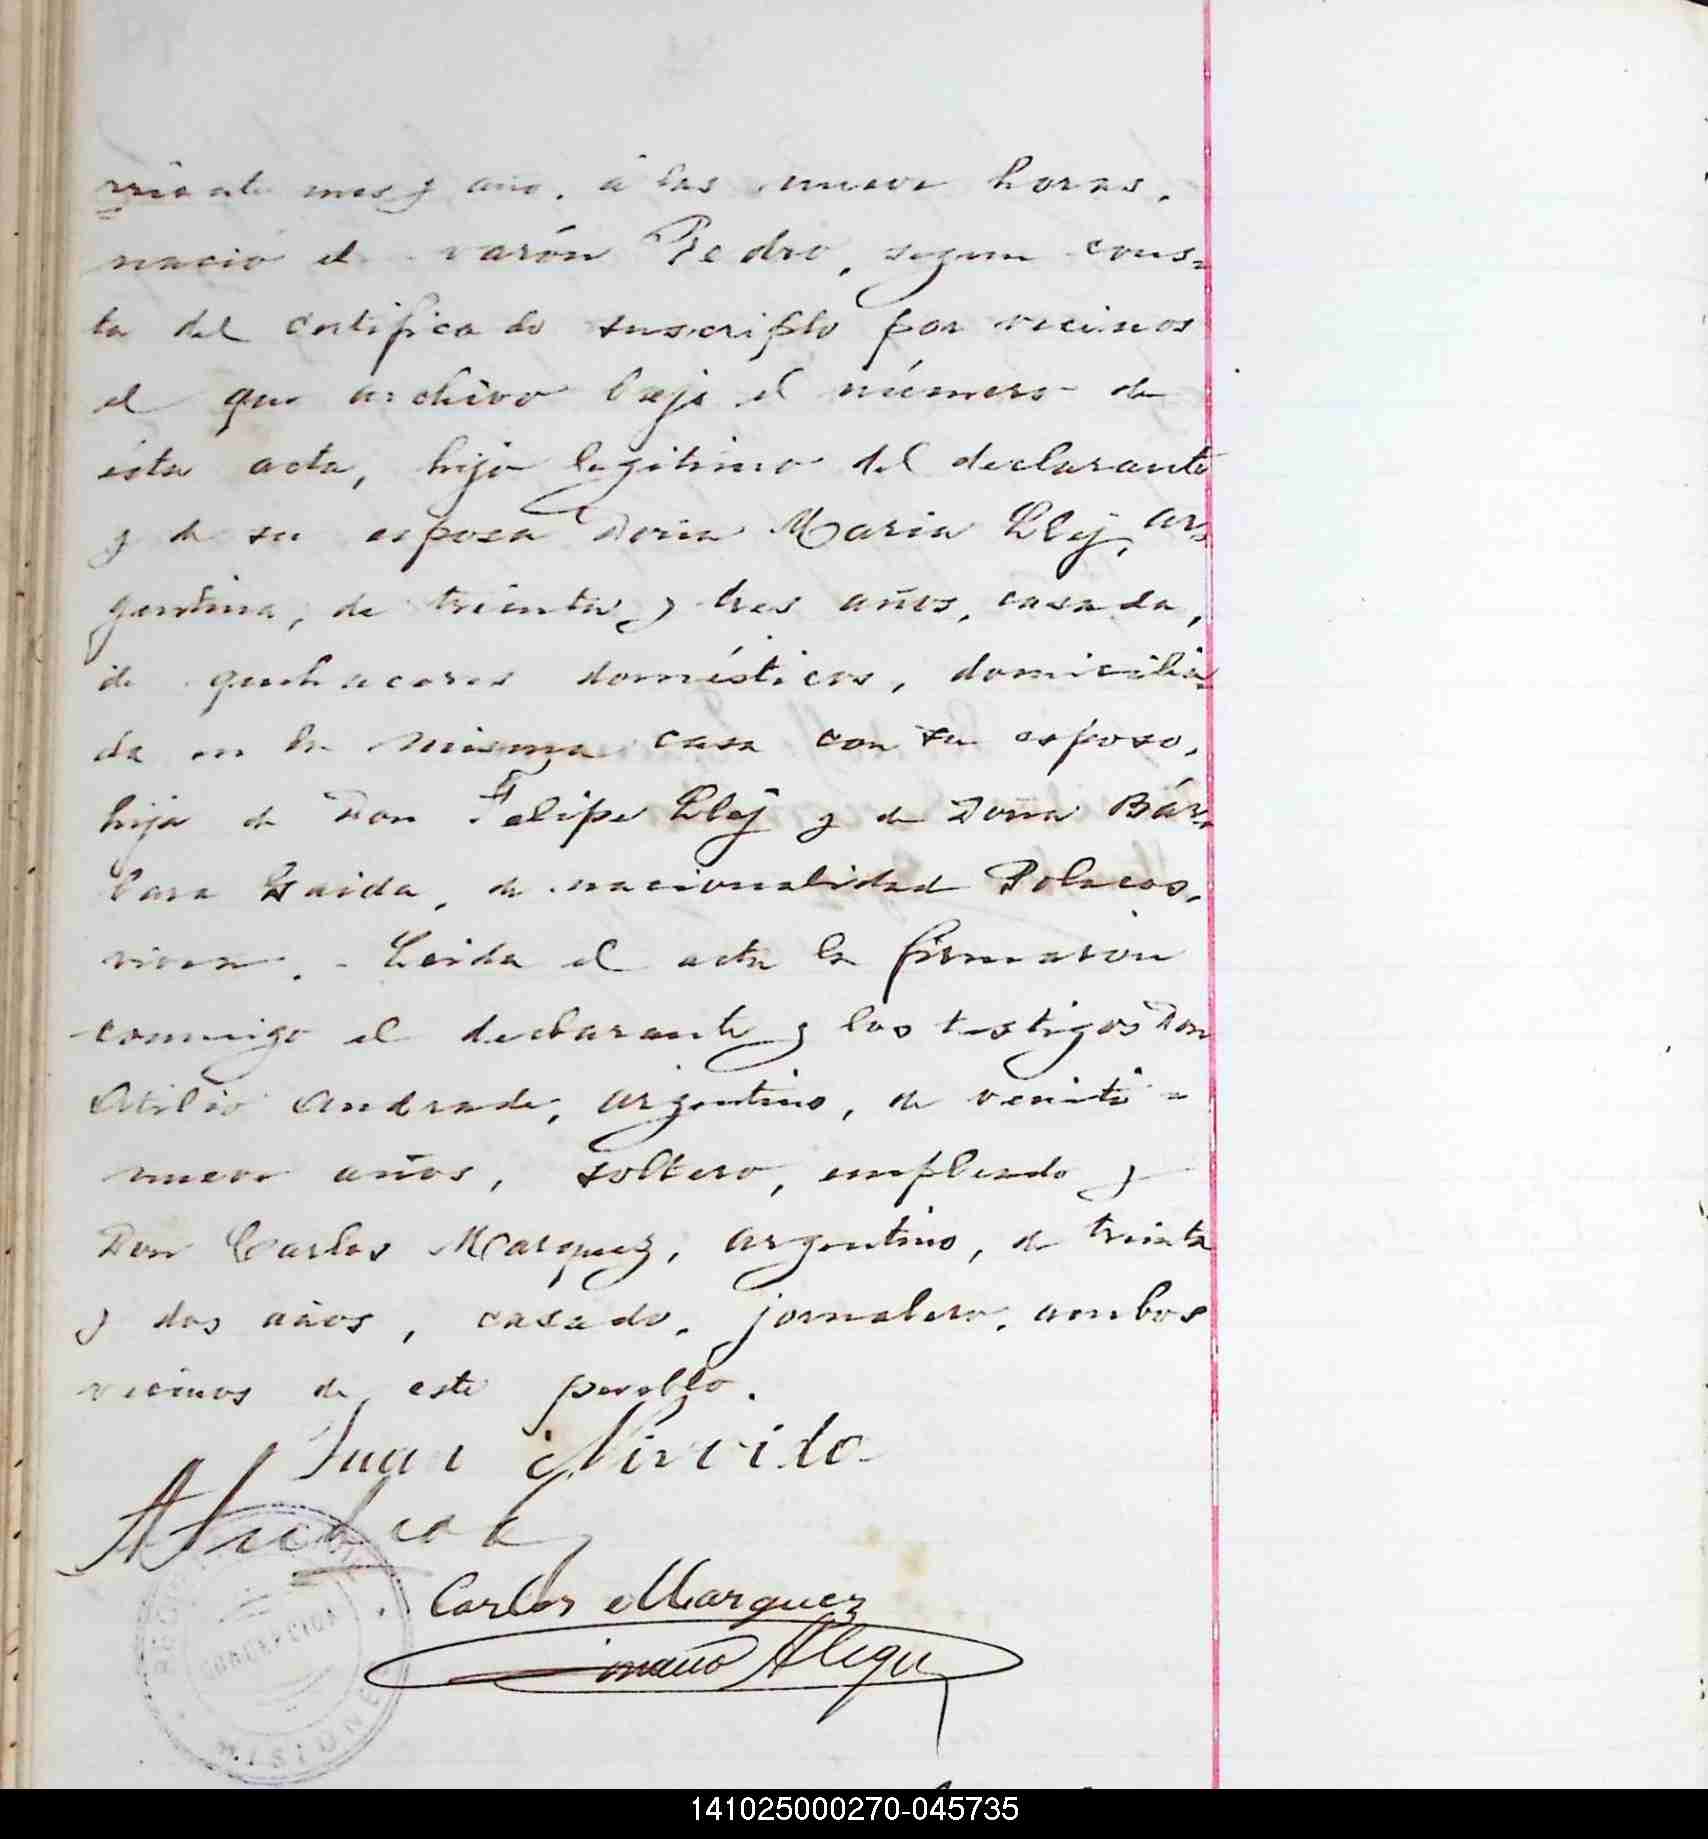 rriente mes y año, á las nueve horas,
nació el varón Pedro, segun cons-
ta del certificado suscripto por vecinos
el que archivo bajo el número de
ésta acta, hijo legitimo del declarante
y de su esposa Doña Maria Eley, ar-
gentina, de treinta y tres años, casada,
de quehaceres domésticos, domicilia-
da en la misma casa con su esposo,
hija de Don Felipe Eley y de Doña Bár-
bara Gaida, de nacionalidad Polacos,
viven. - Leida el acta la firmaron
conmigo el declarante y los testigos Don
Atilio Andrade, argentino, de veinti-
nueve años, soltero, empleado y
Don Carlos Marquez, argentino, de treinta
y dos años, casado, jornalero, ambos
vecinos de este pueblo.
Juan
Carlos Marquez
CONCEPCION
MISIONES
141025000270-045735